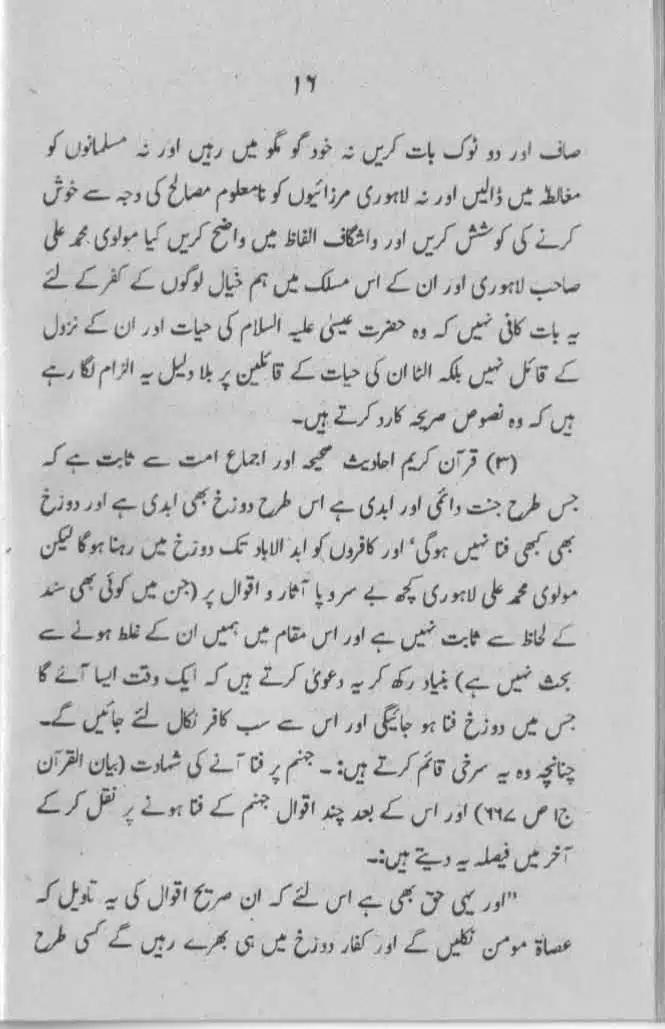 ۱۶
صاف اور دو ٹوک بات کریں نہ خود گو مگو میں رہیں اور نہ مسلمانوں کو
مغالطہ میں ڈالیں اور نہ لاہوری مرزائیوں کو نامعلوم مصالح کی وجہ سے خوش
کرنے کی کوشش کریں اور واشگاف الفاظ میں واضح کریں کیا مولوی محمد علی
صاحب لاہوری اور ان کے اس مسلک میں ہم خیال لوگوں کے کفر کے لئے
یہ بات کافی نہیں کہ وہ حضرت عیسیٰ علیہ السلام کی حیات اور ان کے نزول
کے قائل نہیں بلکہ الٹا ان کی حیات کے قائلین پر بلا دلیل یہ الزام لگا رہے
ہیں کہ وہ نصوص صریحہ کا رد کرتے ہیں۔
(۳) قرآن کریم احادیث صحیحہ اور اجماع امت سے ثابت ہے کہ
جس طرح جنت دائمی اور ابدی ہے اس طرح دوزخ بھی ابدی ہے اور دوزخ
بھی کبھی فنا نہیں ہوگی، اور کافروں کو ابد الاباد تک دوزخ میں رہنا ہوگا لیکن
مولوی محمد علی لاہوری کچھ بے سروپا آثار و اقوال پر (جن میں کوئی بھی سند
کے لحاظ سے ثابت نہیں ہے اور اس مقام میں ہمیں ان کے غلط ہونے سے
بحث نہیں ہے) بنیاد رکھ کر یہ دعویٰ کرتے ہیں کہ ایک وقت ایسا آئے گا
جس میں دوزخ فنا ہو جائیگی اور اس سے سب کافر نکال لئے جائیں گے۔
چنانچہ وہ یہ سرخی قائم کرتے ہیں:۔ جہنم پر فنا آنے کی شہادت (بیان القرآن
ج۱ ص ۶۶۷) اور اس کے بعد چند اقوال جہنم کے فنا ہونے پر نقل کر کے
آخر میں فیصلہ یہ دیتے ہیں:۔
"اور یہی حق بھی ہے اس لئے کہ ان صریح اقوال کی یہ تاویل کہ
عصاۃ مومن نکلیں گے اور کفار دوزخ میں ہی بھرے رہیں گے کسی طرح